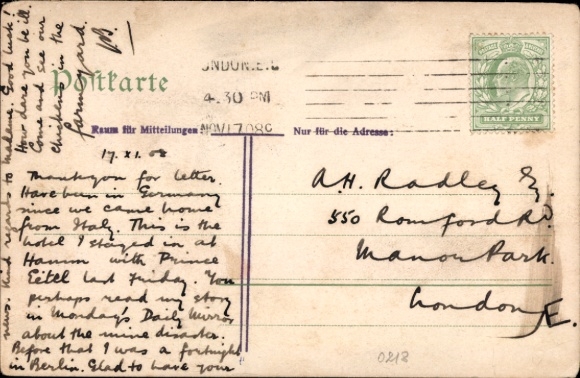 Postkarte
LONDON. E.C
4.30 PM
NOV 17 08
HALF PENNY
Raum für Mitteilungen
Nur für die Adresse:
17. XI. 08
Thank you for letter.
Have been in Germany
since we came home
from Italy. This is the
hotel I stayed in at
Hamm with Prince
Eitel last Friday. You
perhaps read my story
in Monday's Daily Mirror
about the mine disaster.
Before that I was a fortnight
in Berlin. Glad to have your
news. Kind regards to Madame. Good luck!
How dare you be ill.
Come and see our
chickens in the
farmyard.
A.H. Radley Esq.
550 Romford Rd.
Manor Park.
London E.
0218